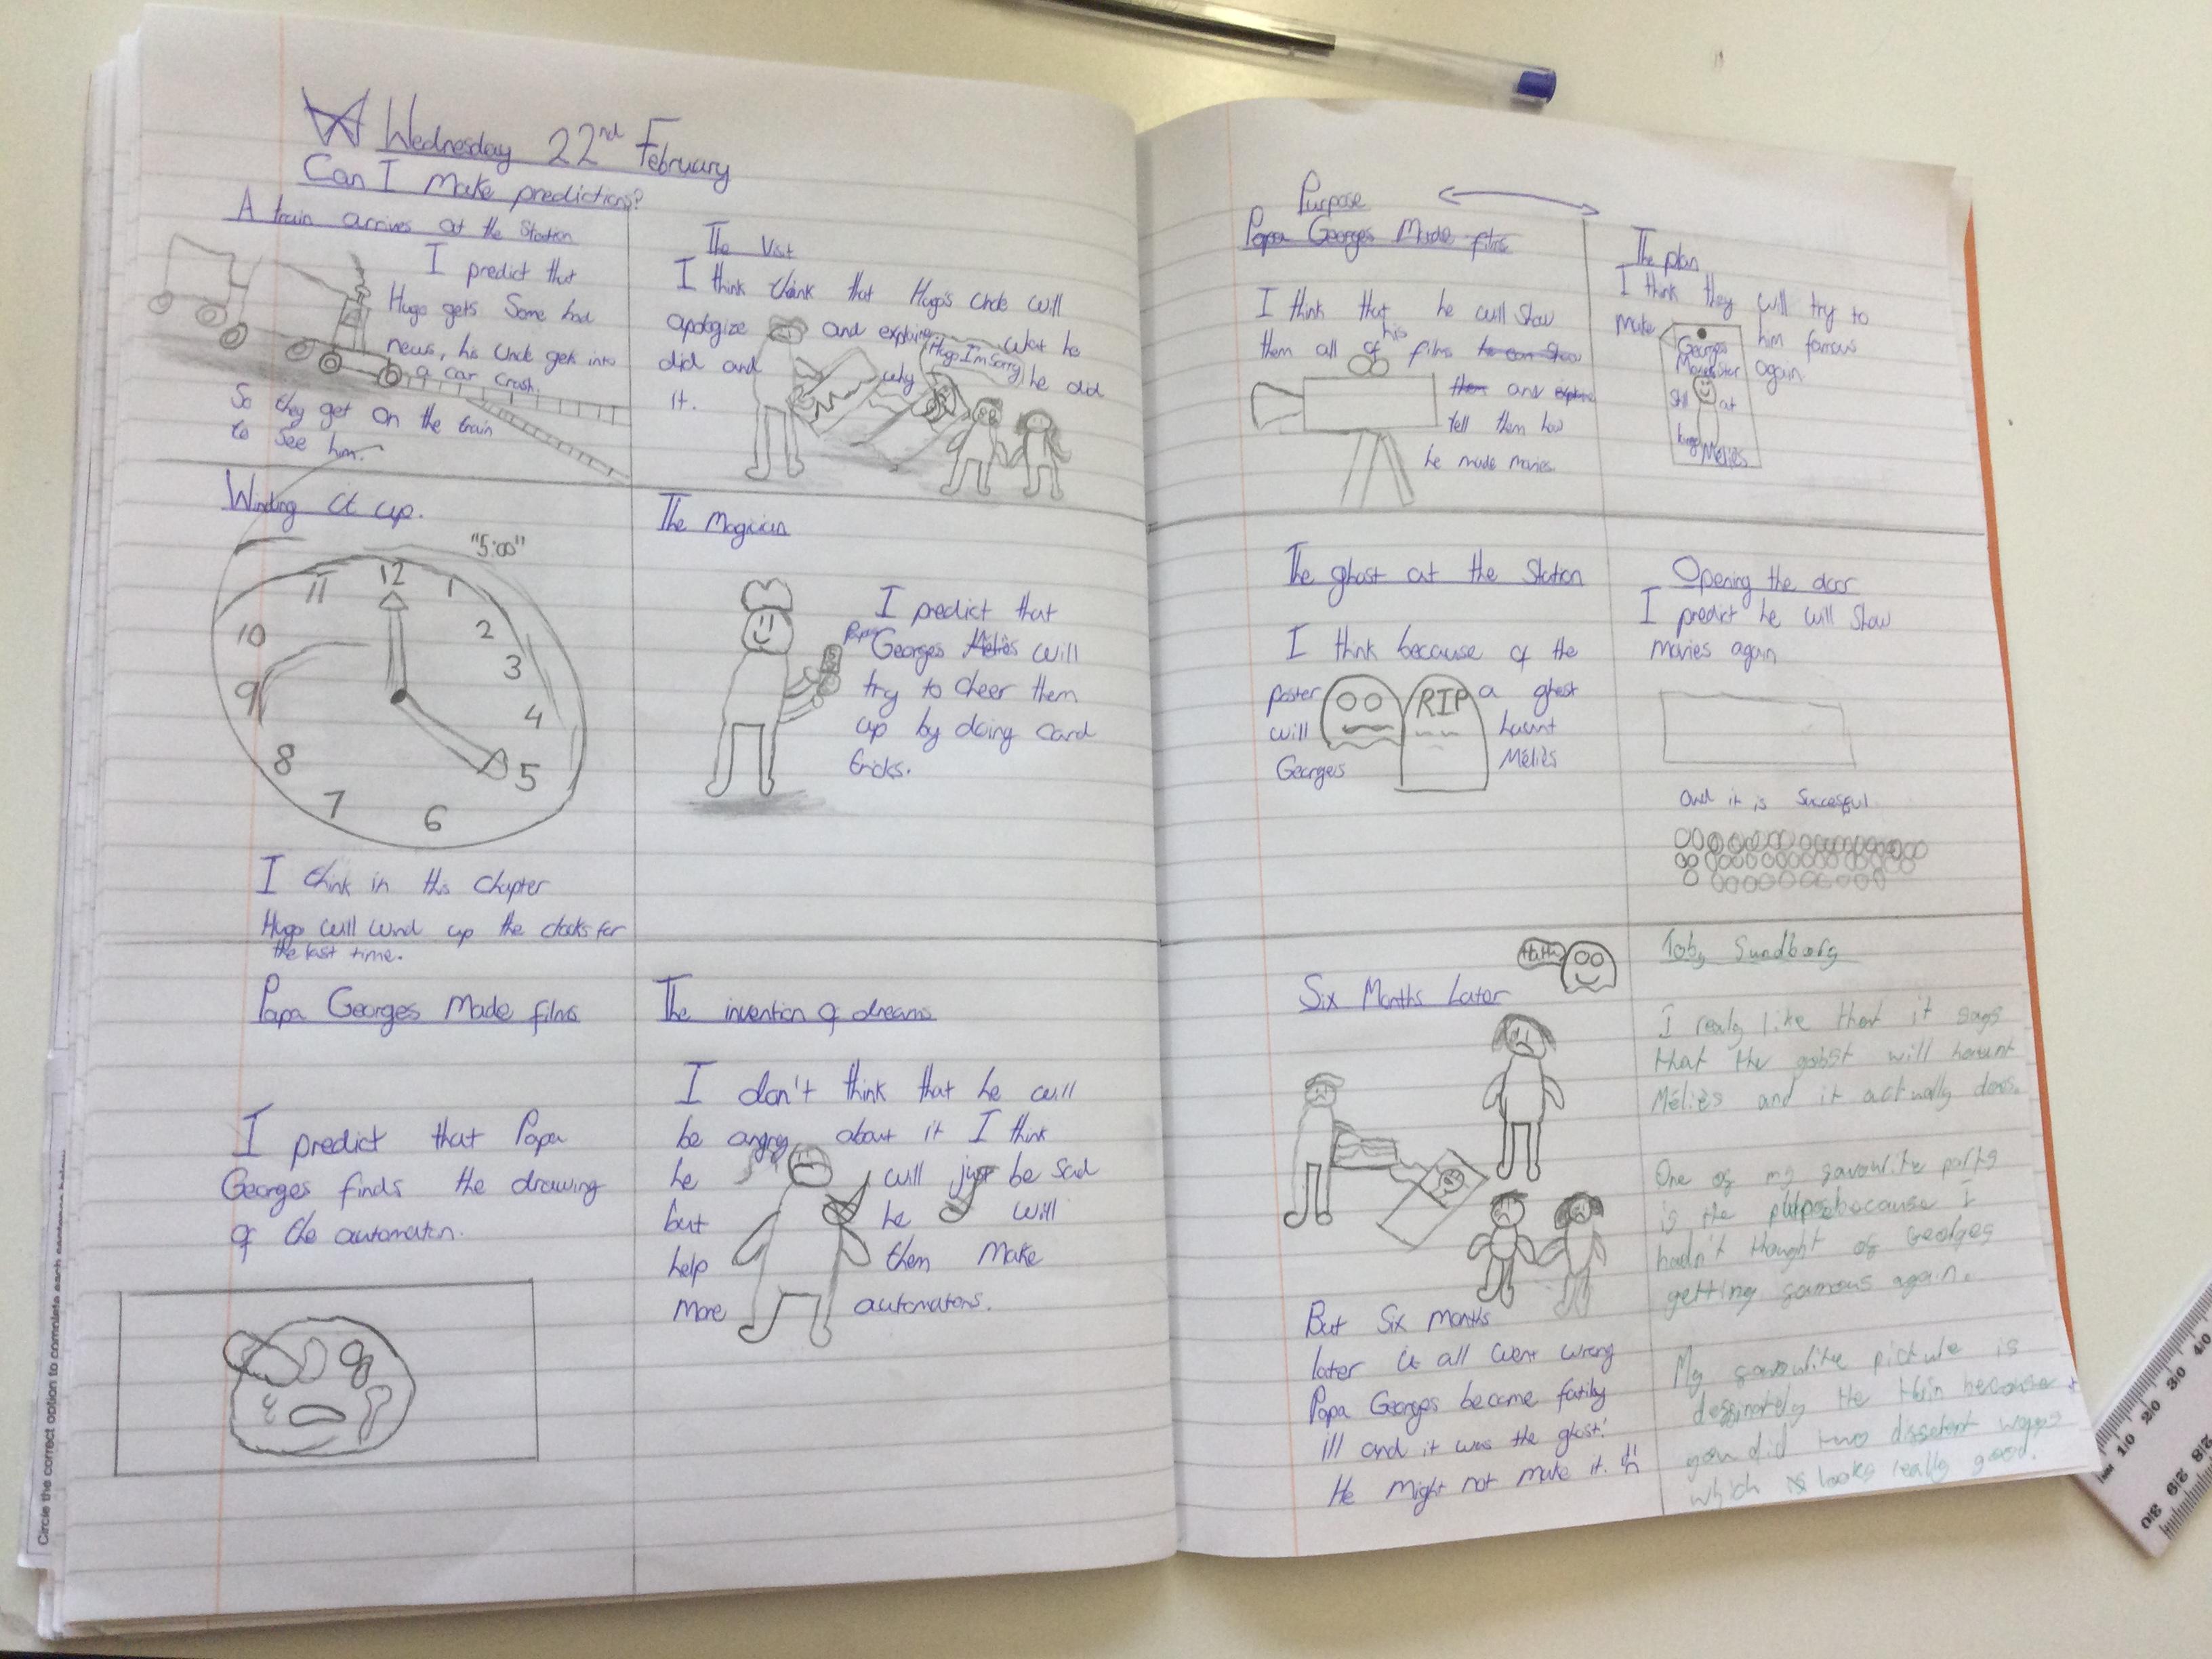 Wednesday 22nd February
Can I make predictions?
A train arrives at the Station
I predict that
Hugo gets Some bad
news, his Uncle gets into
a car crash.
So they get on the train
to see him.
The Vist
I think think that Hugo's Uncle will
apologize and explain what he
did and why he did
it.
Hugo I'm Sorry
Winding it up.
"5:00"
12
11 1
10 2
9 3
8 4
7 5
6
I think in this Chapter
Hugo will wind up the clocks for
the last time.
The Magician
I predict that
Papa Georges Méliès will
try to cheer them
up by doing card
tricks.
Papa Georges Made films
I predict that Papa
Georges finds the drawing
of the automaton.
The invention of dreams
I don't think that he will
be angry about it I think
he will just be sad
but he will
help them make
more automatons.
Circle the correct option to complete each sentence below.
Purpose
Papa Georges Made films
I think that he will show
them all of his films he can show
them and explain
tell them how
he made movies.
The plan
I think they will try to
make him famous
again
Georges
Still at
Méliès
The ghost at the Station
I think because of the
poster a ghost
will haunt
Georges Méliès
RIP
Opening the door
I predict he will show
movies again
and it is Succesful
Six Months Later
HaHa
But Six months
later it all went wrong
Papa Georges became fatily
ill and it was the ghost!
He might not make it.
Toby Sundborg
I realy like that it says
that the gobst will haount
Méliès and it actually does.
One of my favourite parts
is the purpose because I
hadn't thought of Georges
getting famous again.
My favourite picture is
deffinately the train because
you did two diffetent ways
which is looks really good.
10 20 30 40